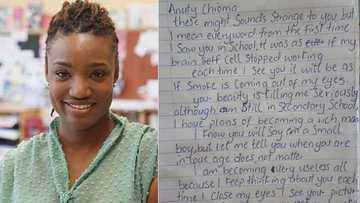 Anuty Chioma
these might Sounds Strange to you but
I mean everyword from the first time
I saw you in School, it was as if my
brain Self Cell Stopped working
each time I See you it will be as
if Smoke is Coming out of my eyes.
your beauty is killing me Seriously
although am Still in Secondary School
I have plans of becoming a rich man
I know you will say am a Small
boy, but let me tell you when you are
in love age does not matter
I am becoming very useless all
because I keep thinking about you each
time I close my eyes I see your picture